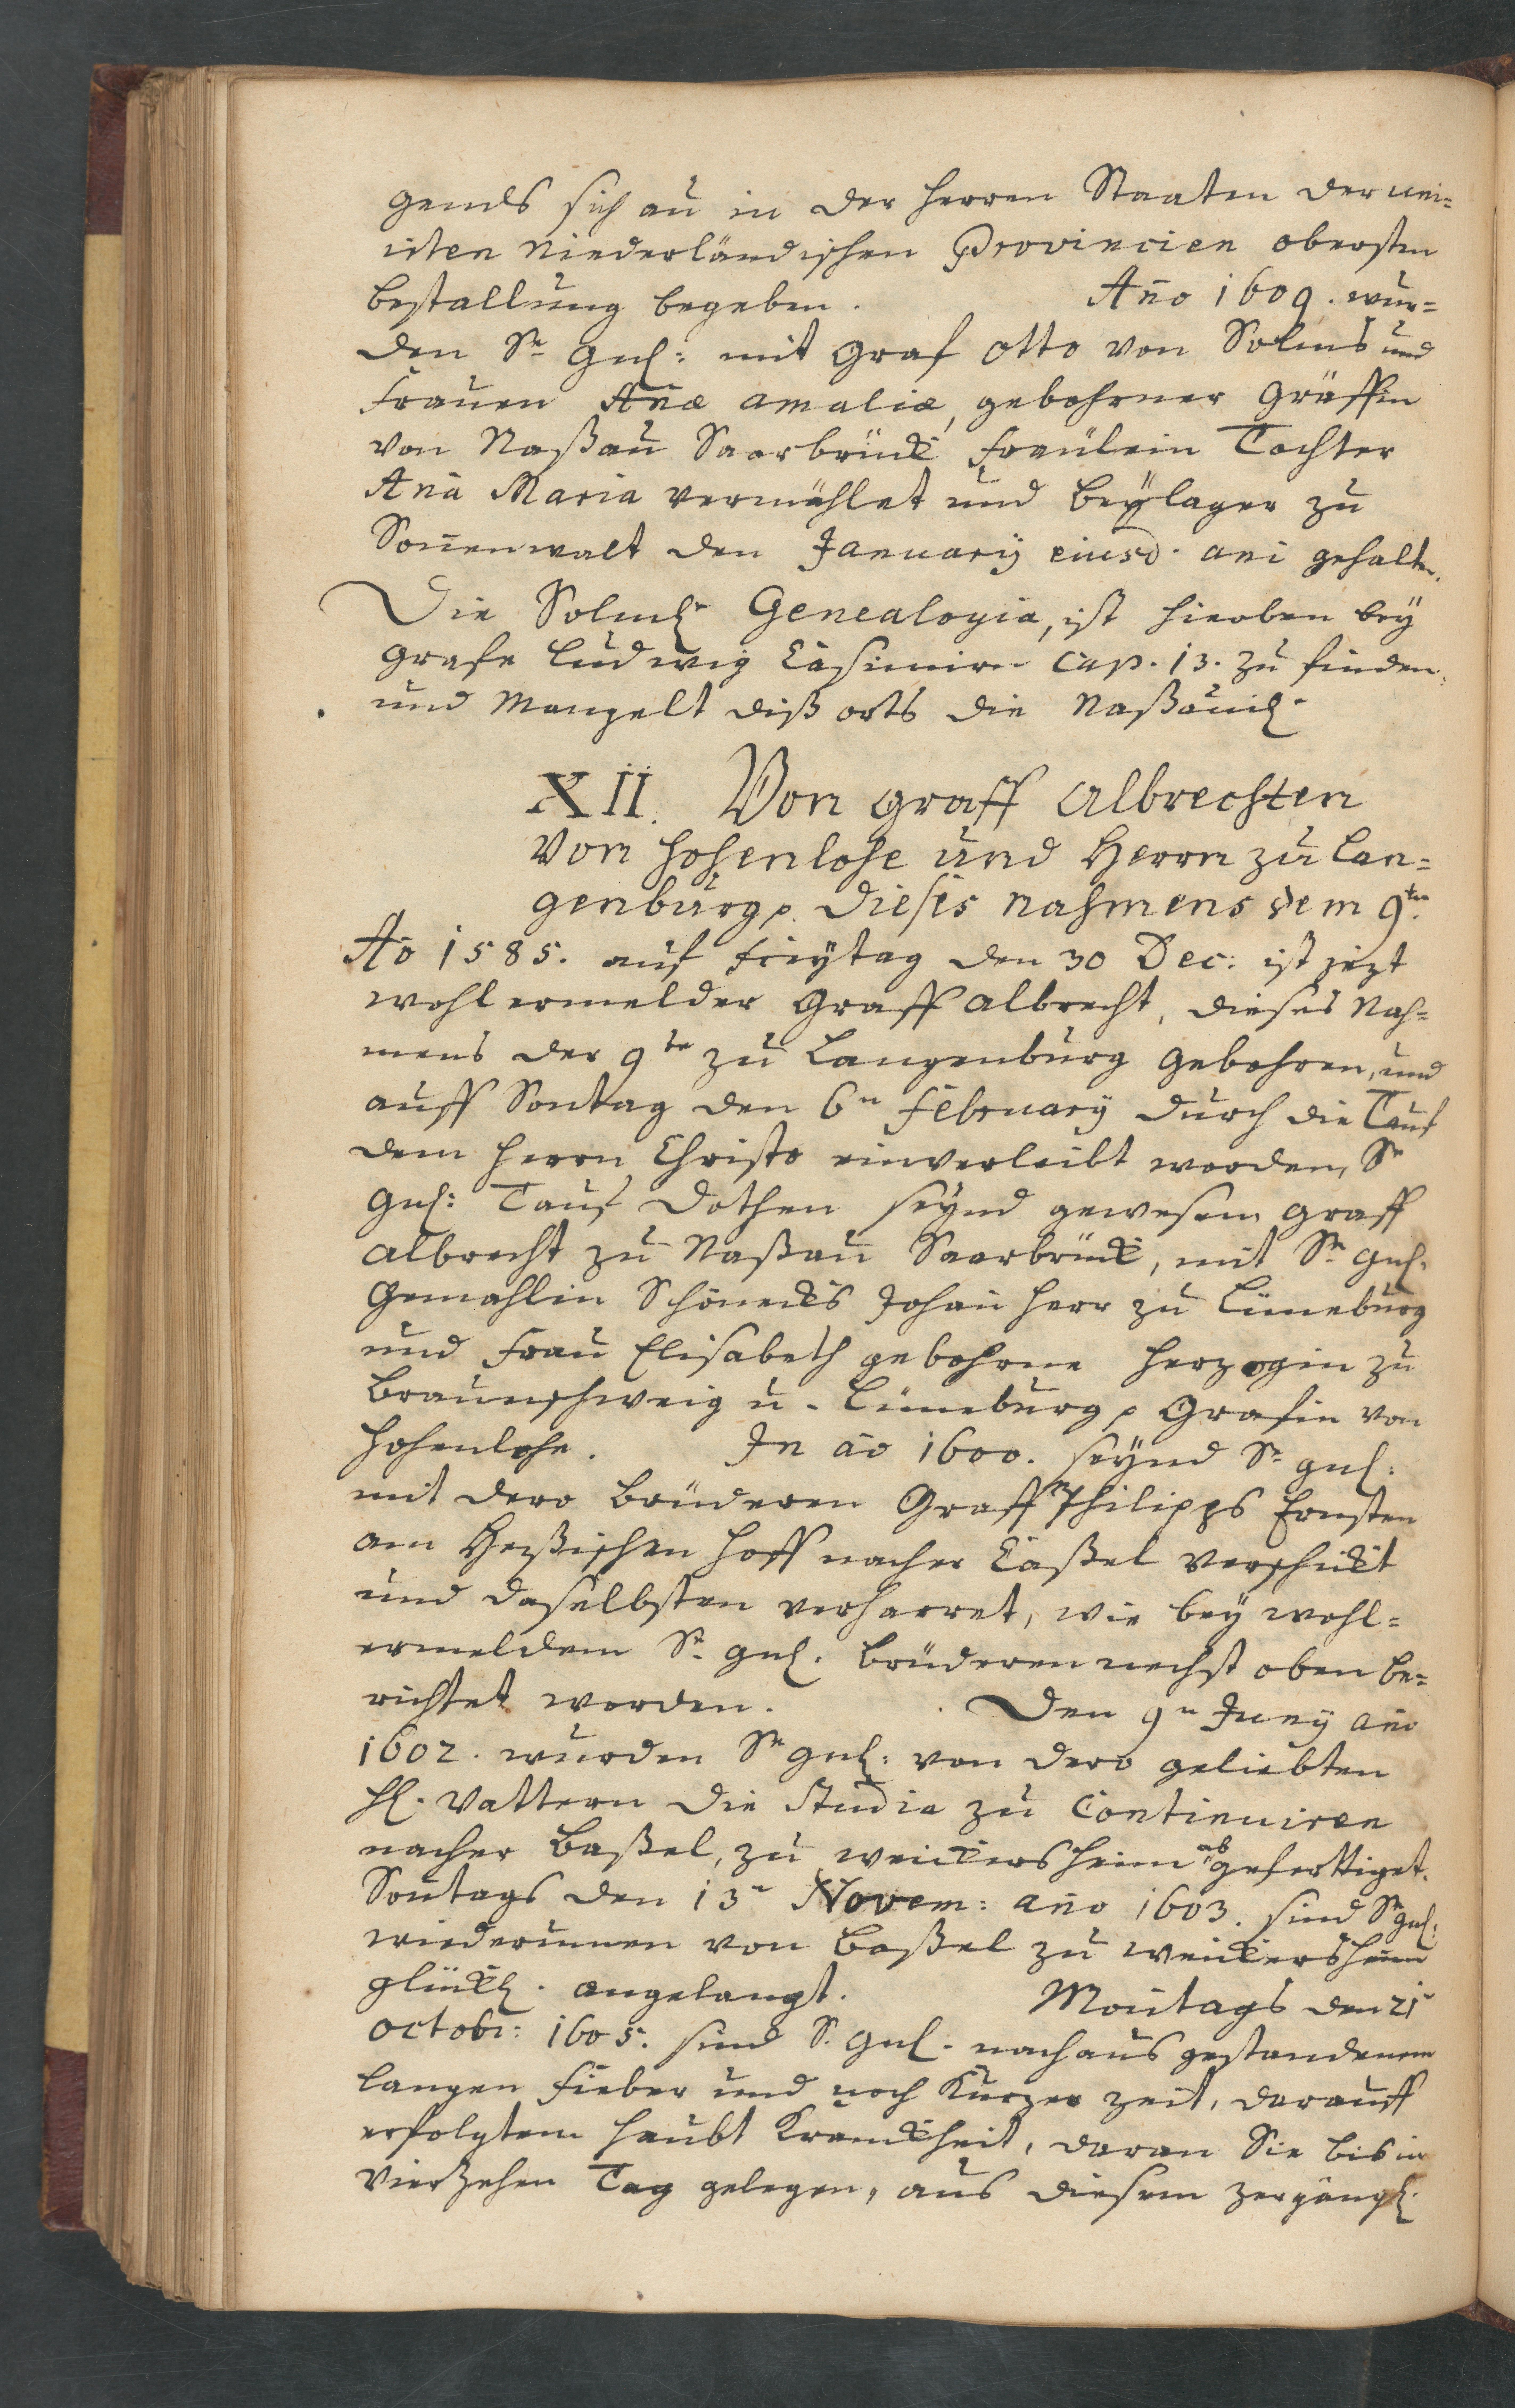 gends sich au in der Herren Staaten der uni=
irten Niederländischen Provincien obersten
bestallung begeben. Año 1609. wur=
den Sr Gnl: mit Graf Otto von Solms und
Frauen Añæ Amaliæ, gebohrner Gräffin
von Naßau Saarbrück Fräulein Tochter
Aña Maria vermählet und Beÿlager zu
Soñenwalt den Januarÿ eiusd. ani gehalten.
Die Solmsl. Genealogia, ist hieoben beÿ
Grafe Ludwig Casimirn Cap. 13. zu finden,
und Mangelt diß orts die Naßauil.
XII. Von Graff Albrechten
Von Hohenlohe und Herrn zu Lan=
genburg p. dieses Nahmens dem 9ten.
Aõ 1585. auf Freÿtag den 30 Dec: ist jezt
wohl ermelder Graff Albrecht, dieses Nah=
mens der 9te zu Langenburg gebohren, und
auff Sontag den 6n Februarÿ durch die Tauf
dem Herrn Christo einverleibt worden, Sr
Gnl: Tauf Dothen seÿnd gewesen Graff
Albrecht zu Naßau Saarbrück, mit Sr Gnl.
Gemahlin Schönecks Johañ Herr zu Lüneburg
und Frau Elisabeth gebohrne Herzogin zu
Braunschweig u. Lüneburg p Grafin von
Hohenlohe. In aõ 1600. seÿnd Sr gnl:
mit dero Brüderen Graff Philipps Ernsten
am Heßischen Hoff nacher Caßel verschikt
und daselbsten verharret, wie beÿ wohl=
ermeldem Sr gnl. Brüderen nechst oben be=
richtet worden. Den 9n Junÿ año
1602. wurden Sr gnl: von dero geliebten
Hl. Vattern die Studia zu Continuiren
nacher Baßel, zu Weickersheim abgefertiget.
Soñtags den 13n Novem: año 1603. sind Sr gnl:
wiederumen von Baßel zu Weickersheim
glückl. angelangt. Moñtags den 21n
octobr: 1605. sind S. Gnl. nach aus gestandenem
langen Fieber und noch Kurzer Zeit, darauff
erfolgtem Haubt Kranckheit, daran Sie bis in
Vierzehen Tag gelegen, aus diesem zergängl.